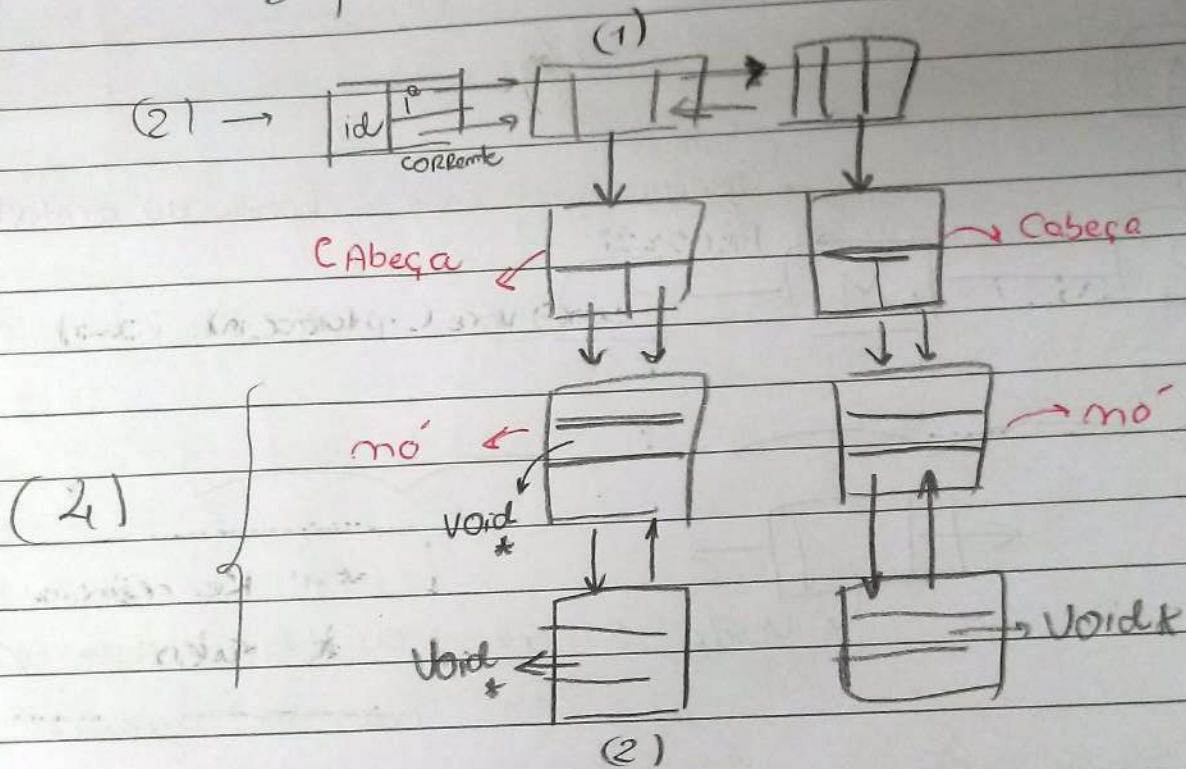 (1)
(2) →
id
1º
CORRente
CAbeça
Cabeça
nó
nó
(2)
void
*
Void
*
Void *
(2)